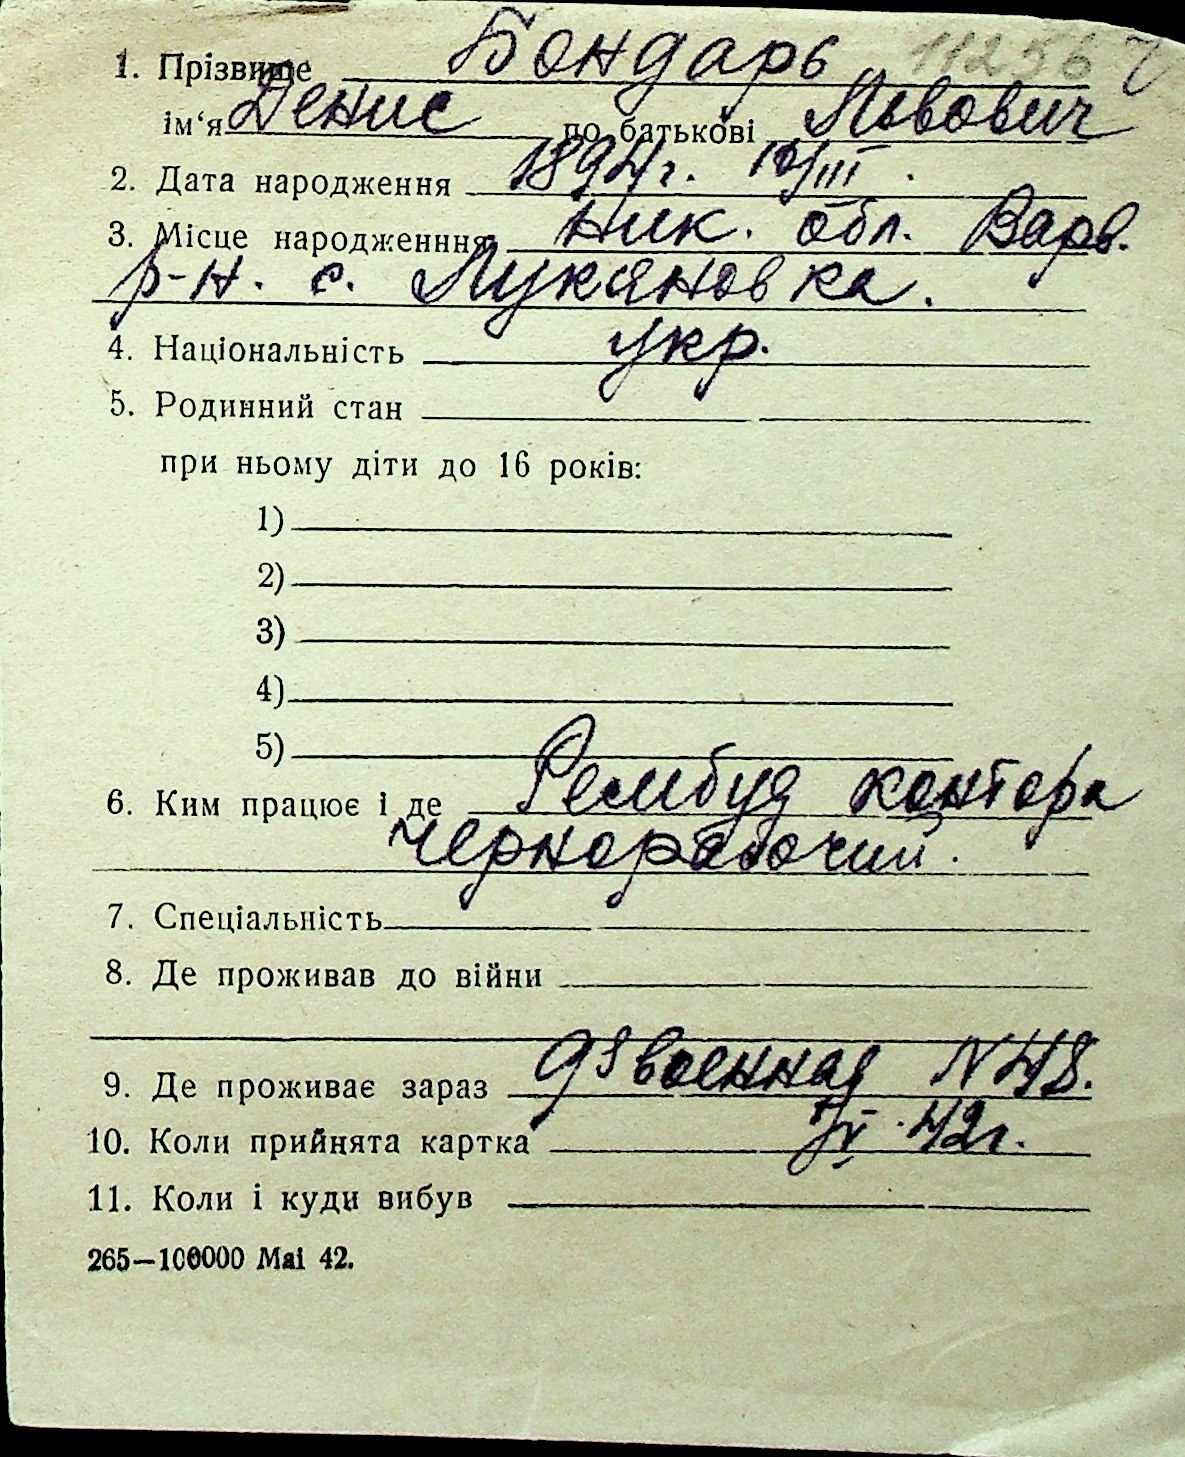 1. Прізвище Бондарь 11256
ім‘я Денис по батькові Львович
2. Дата народження 1894г. 10/III.
3. Місце народженння: Ник. обл. Варв.
р-н. с. Лукяновка.
4. Національність укр.
5. Родинний стан
при ньому діти до 16 років:
1)
2)
3)
4)
5)
6. Ким працює і де Рембуд контора
чернорабочий.
7. Спеціальність
8. Де проживав до війни
9. Де проживає зараз 9 Военная N 48.
10. Коли прийнята картка V.42г.
11. Коли і куди вибув
265—100000 Mai 42.